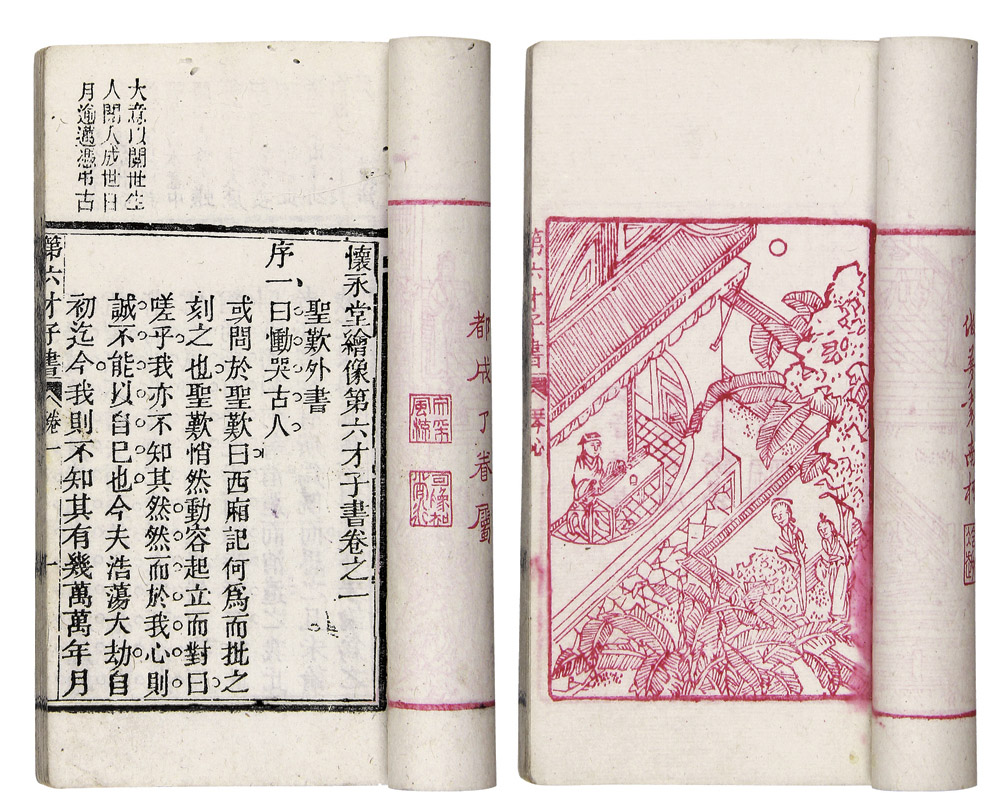 都成了眷屬
懷永堂繪像第六才子書卷之一
聖歎外書
序一曰慟哭古人
或問於聖歎曰西廂記何爲而批之
刻之也聖歎悄然動容起立而對曰
嗟乎我亦不知其然然而於我心則
誠不能以自已也今夫浩蕩大劫自
初迄今我則不知其有幾萬萬年月
大意以閱世生
人閱人成世日
月逾邁憑弔古
第六才子書
卷一
一
第六才子書
琴心